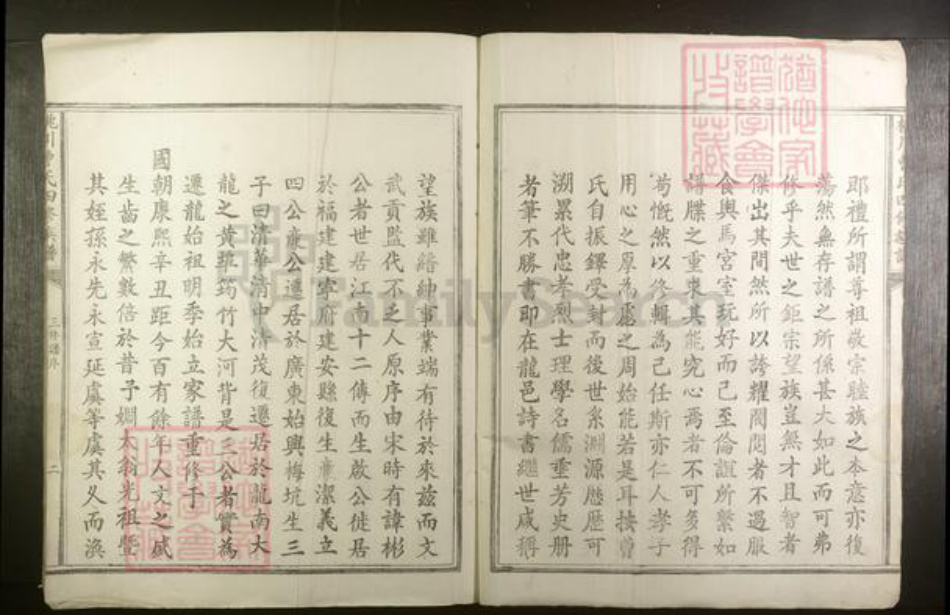 卽禮所謂尊祖敬宗睦族之本意亦復
蕩然無存譜之所係甚大如此而可弗
修乎夫世之鉅宗望族豈無才且智者
傑出其間然所以誇耀閥閱者不過服
食輿馬宮室玩好而已至倫誼所繫如
譜牒之重求其能究心焉者不可多得
苟慨然以修輯為己任斯亦仁人孝子
用心之厚為慮之周始能若是耳按曾
氏自振鐸受封而後世系淵源歷歷可
溯累代忠孝烈士理學名儒垂芳史册
者筆不勝書即在龍邑詩書繼世咸稱
望族雖縉紳事業端有待於來茲而文
武貢監代不乏人原序由宋時有諱彬
公者世居江南十二傳而生啟公徙居
於福建建寧府建安縣復生熏潔義立
四公廉公遷居於廣東始興梅坑生三
子曰清華清中清茂復遷居於龍南大
龍之黃雉筠竹大河背是三公者實為
遷龍始祖明季始立家譜重修于
國朝康熙辛丑距今百有餘年人文之盛
生齒之繁數倍於昔予嫺太翁光祖暨
其姪孫永先永宣延虞等虞其久而渙
氏四修族譜
三修譜序
二
FamilySearch
譜學會
收藏